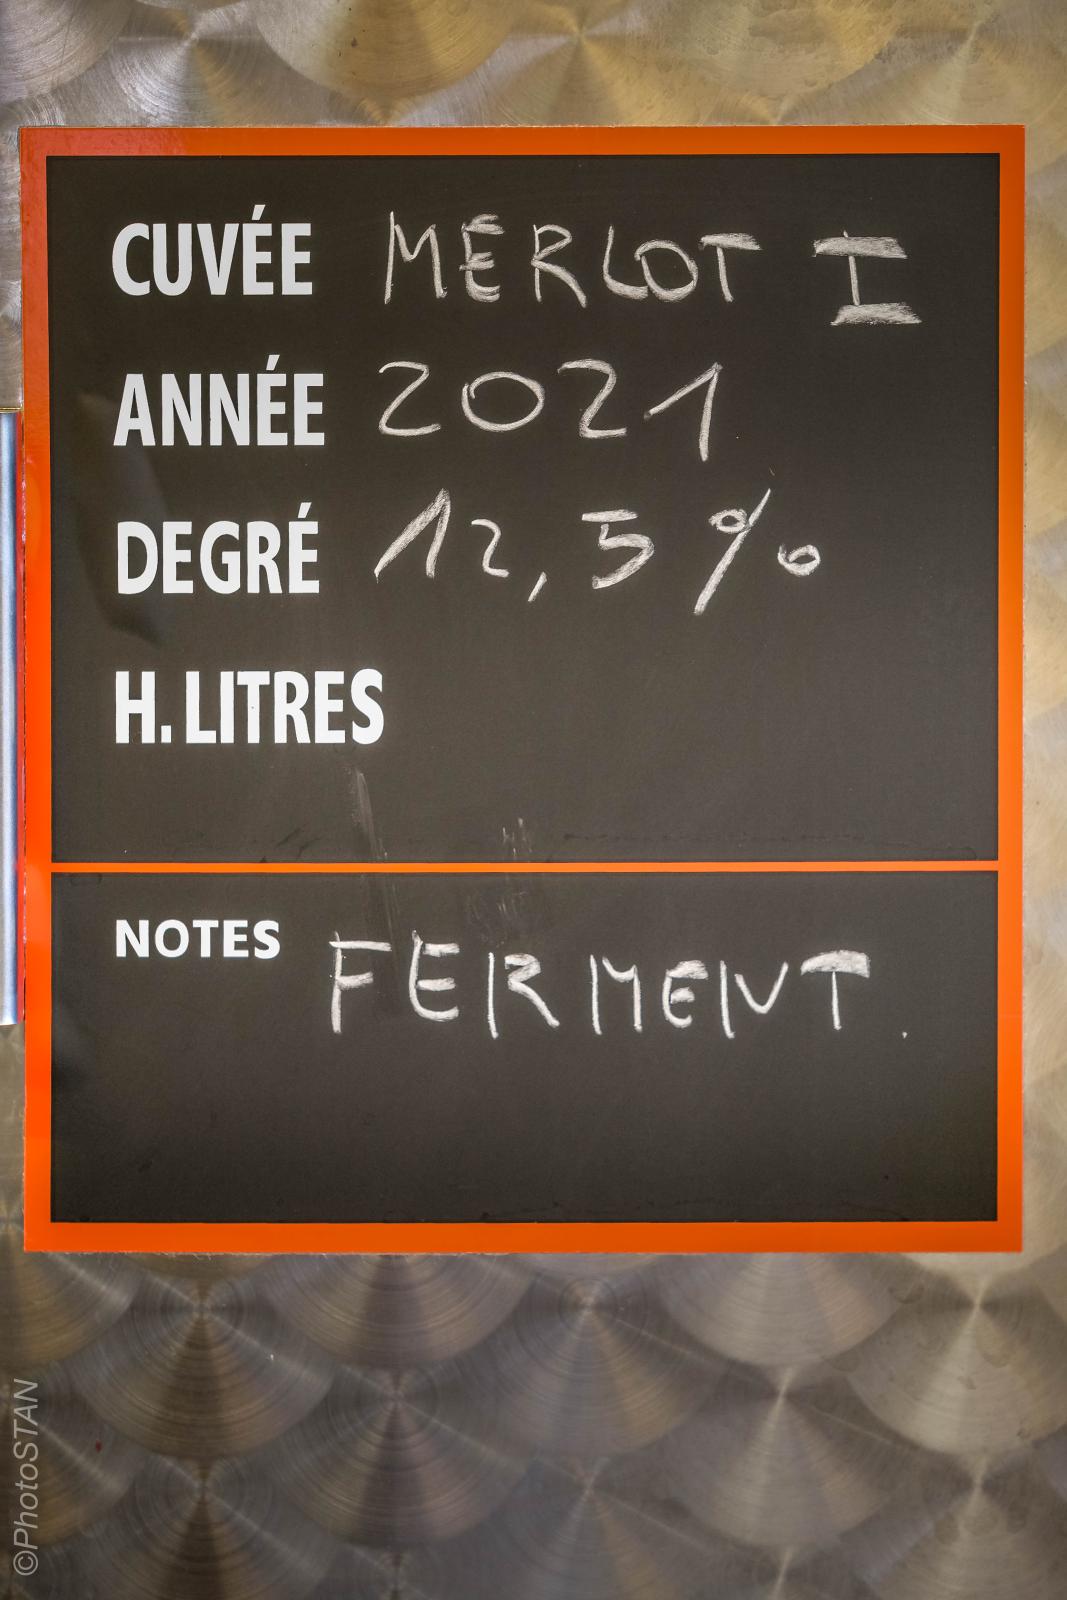 CUVÉE MERLOT I
ANNÉE 2021
DEGRÉ 12,5%
H. LITRES
NOTES FERMENT.
©PhotoSTAN